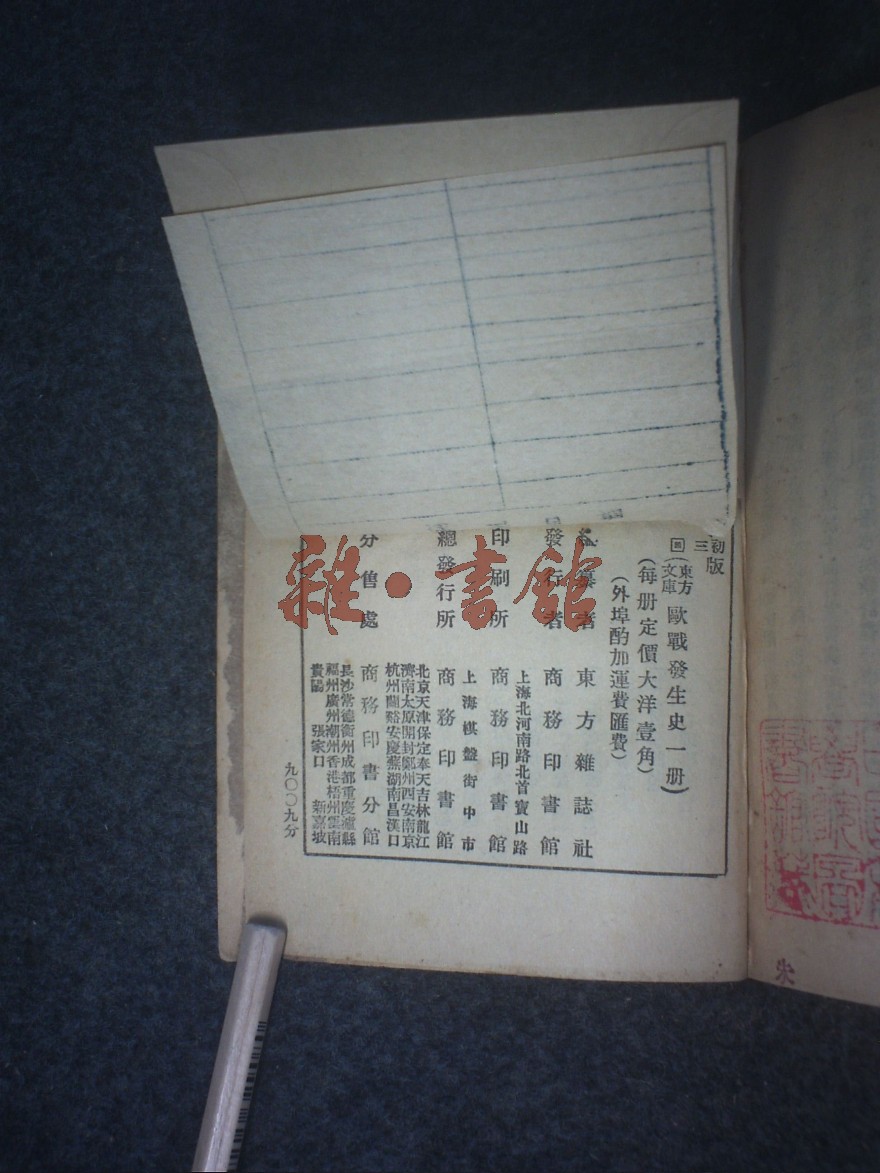 初版
三
(東方文庫)歐戰發生史一册)
(每册定價大洋壹角)
(外埠酌加運費匯費)
纂者 東方雜誌社
發行者 商務印書館
上海北河南路北首寶山路
印刷所 商務印書館
上海棋盤街中市
總發行所 商務印書館
北京天津保定奉天吉林龍江
濟南太原開封鄭州西安南京
杭州蘭谿安慶蕪湖南昌漢口
分售處 商務印書分館
長沙常德衡州成都重慶瀘縣
福州廣州潮州香港梧州雲南
貴陽 張家口 新嘉坡
九〇〇九分
雜·書館